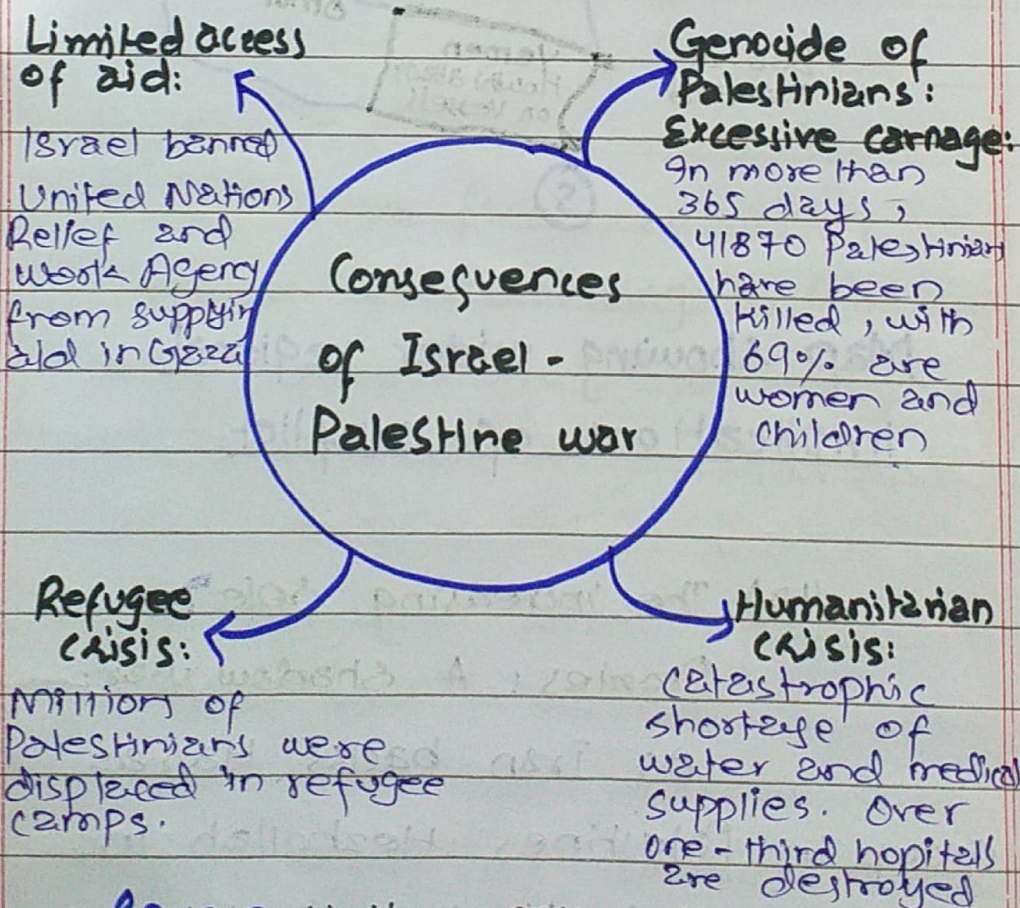 Limited access
of aid:
Israel banned
United Nations
Relief and
Work Agency
from supplyin
aid in Gaza
Genocide of
Palestinians:
Excessive carnage:
In more than
365 days,
41870 Palestinian
have been
killed, with
69% are
women and
children
Consequences
of Israel-
Palestine war
Refugee
crisis:
Millions of
Palestinians were
displaced in refugee
camps.
Humanitarian
crisis:
Catastrophic
shortage of
water and medical
supplies. Over
one-third hopitals
are destroyed